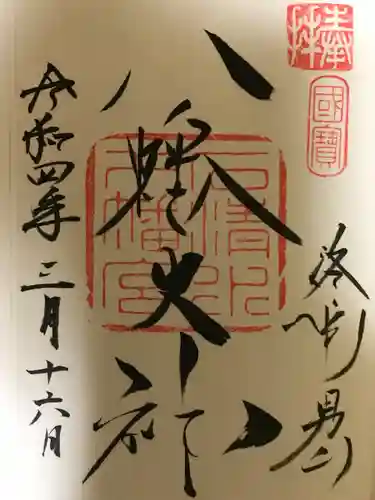 奉拝
國寶
洛南男山
八幡大神
石清水八幡宮
令和四年三月十六日